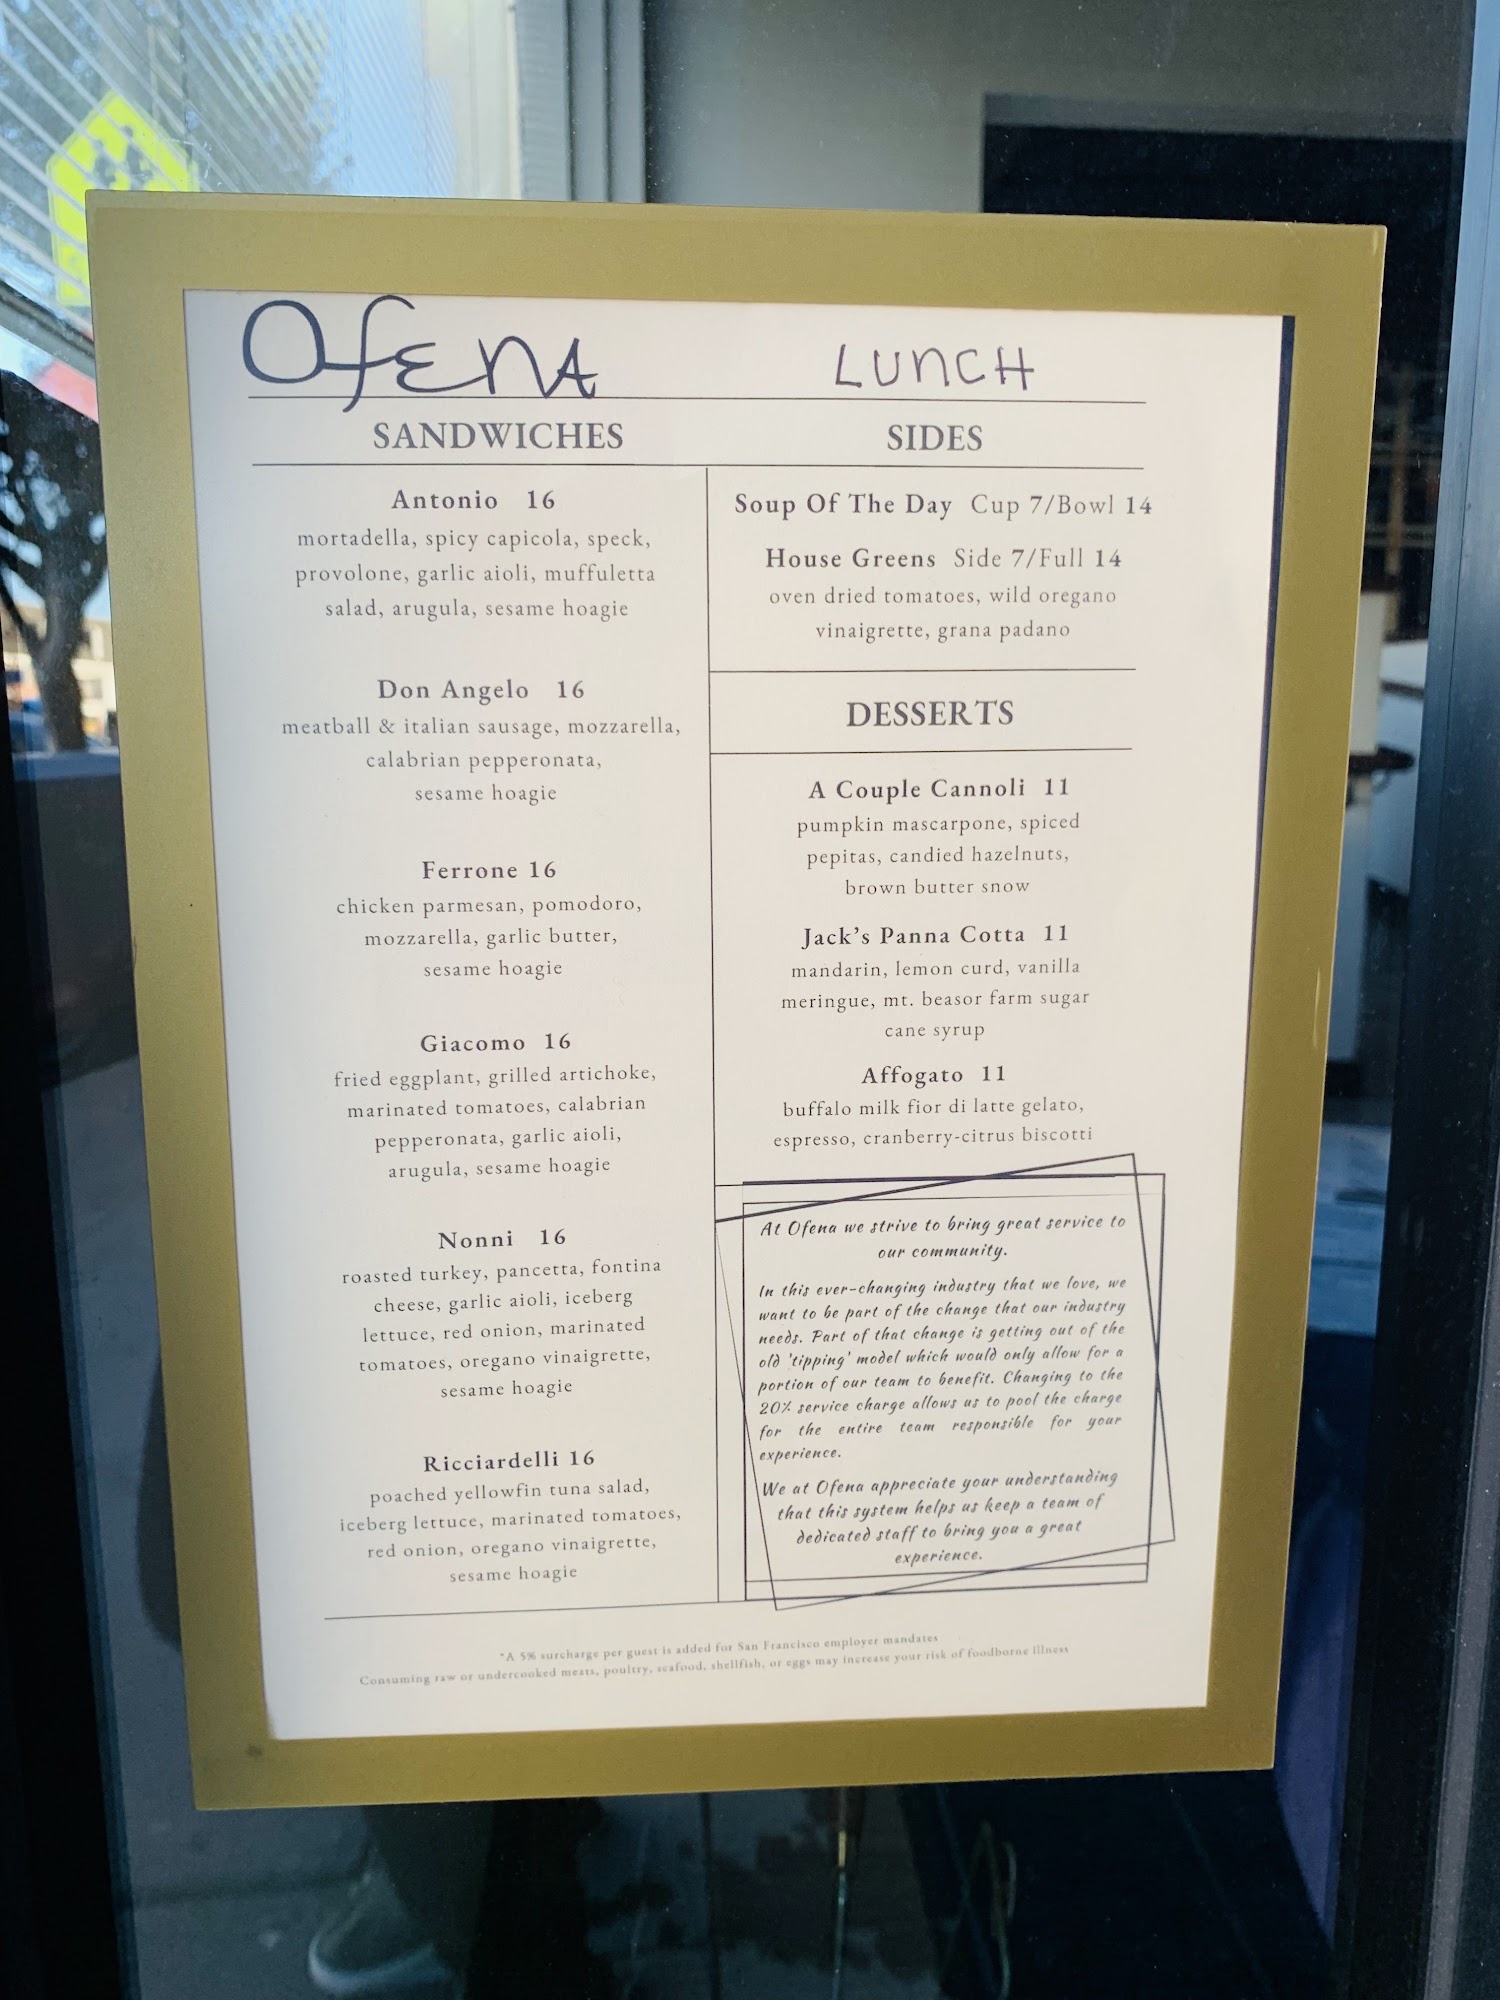 Ofena
LUNCH
SANDWICHES
Antonio 16
mortadella, spicy capicola, speck,
provolone, garlic aioli, muffuletta
salad, arugula, sesame hoagie
Don Angelo 16
meatball & italian sausage, mozzarella,
calabrian pepperonata,
sesame hoagie
Ferrone 16
chicken parmesan, pomodoro,
mozzarella, garlic butter,
sesame hoagie
Giacomo 16
fried eggplant, grilled artichoke,
marinated tomatoes, calabrian
pepperonata, garlic aioli,
arugula, sesame hoagie
Nonni 16
roasted turkey, pancetta, fontina
cheese, garlic aioli, iceberg
lettuce, red onion, marinated
tomatoes, oregano vinaigrette,
sesame hoagie
Ricciardelli 16
poached yellowfin tuna salad,
iceberg lettuce, marinated tomatoes,
red onion, oregano vinaigrette,
sesame hoagie
SIDES
Soup Of The Day Cup 7/Bowl 14
House Greens Side 7/Full 14
oven dried tomatoes, wild oregano
vinaigrette, grana padano
DESSERTS
A Couple Cannoli 11
pumpkin mascarpone, spiced
pepitas, candied hazelnuts,
brown butter snow
Jack's Panna Cotta 11
mandarin, lemon curd, vanilla
meringue, mt. beasor farm sugar
cane syrup
Affogato 11
buffalo milk fior di latte gelato,
espresso, cranberry-citrus biscotti
At Ofena we strive to bring great service to
our community.
In this ever-changing industry that we love, we
want to be part of the change that our industry
needs. Part of that change is getting out of the
old 'tipping' model which would only allow for a
portion of our team to benefit. Changing to the
20% service charge allows us to pool the charge
for the entire team responsible for your
experience.
We at Ofena appreciate your understanding
that this system helps us keep a team of
dedicated staff to bring you a great
experience.
*A 5% surcharge per guest is added for San Francisco employer mandates
Consuming raw or undercooked meats, poultry, seafood, shellfish, or eggs may increase your risk of foodborne illness